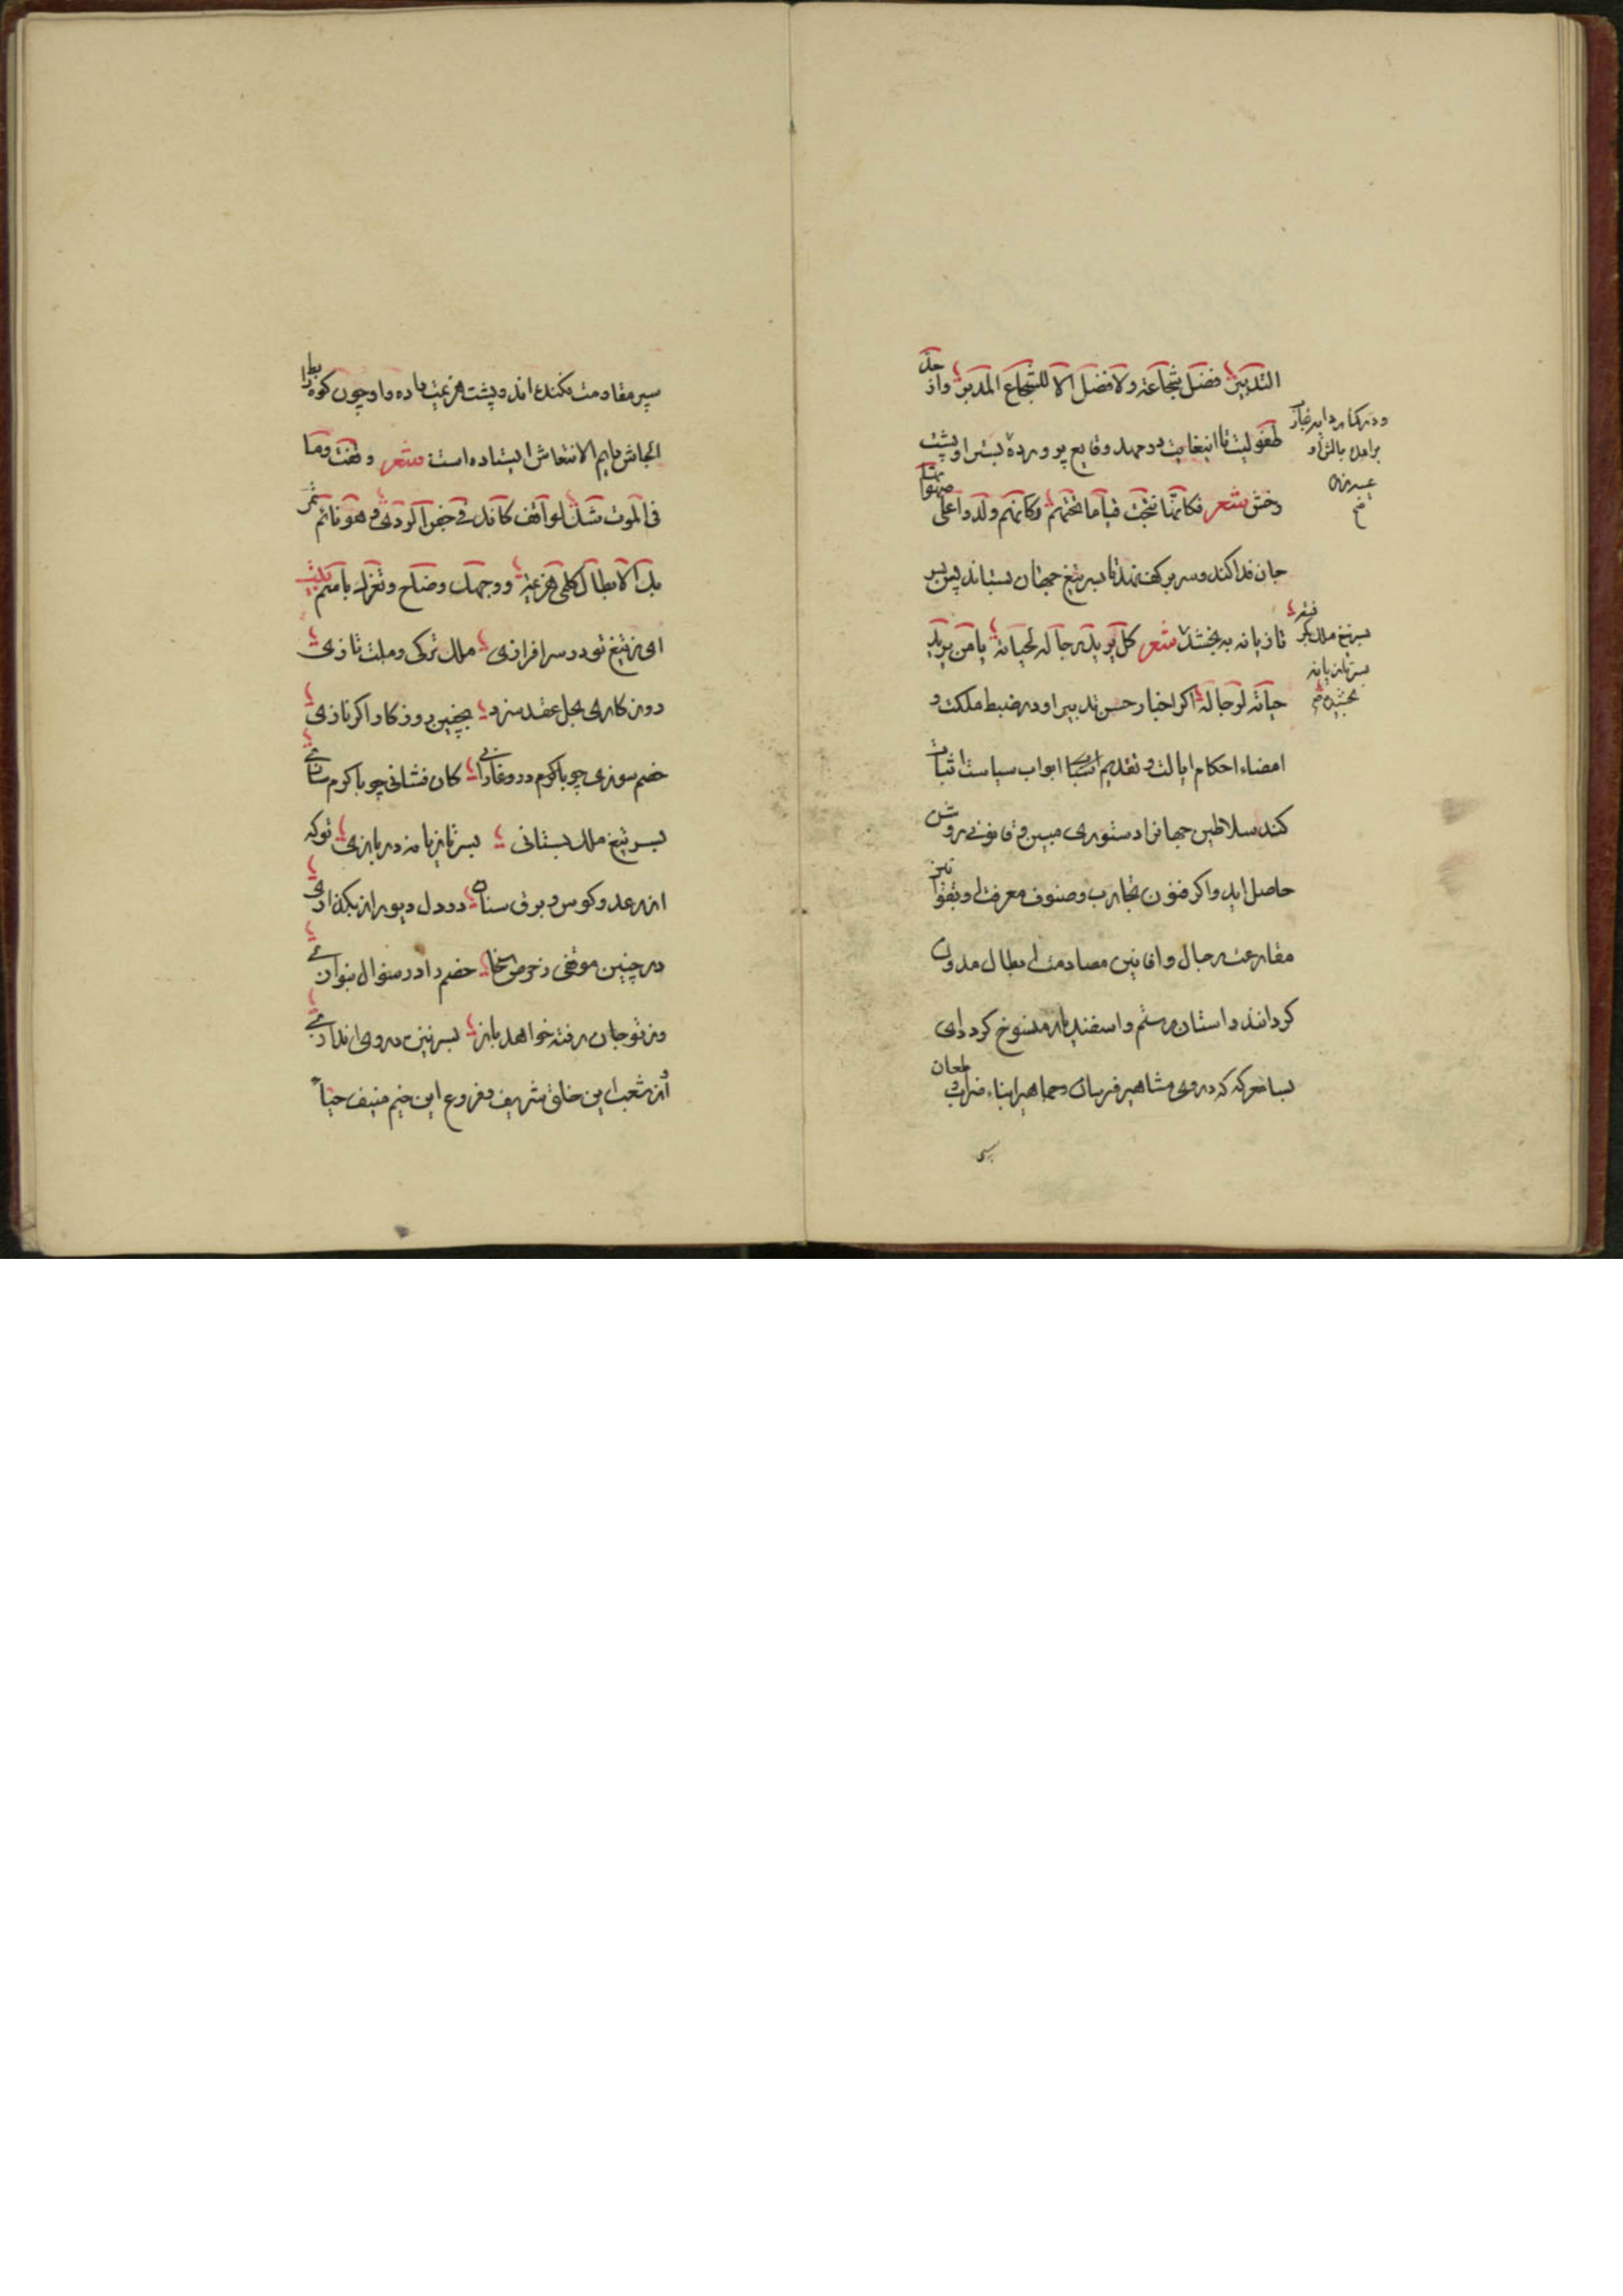 التدبیر فضل شجاعة ولا فضل الا للشجاع المدبر واز حد
طفولیت تا انبغایت در مهد وقایع پرورده بستر او پشت
رخش شعر فکانما نتجت قیاما تحتهم وکانهم ولدوا علی صهواتها
جان فدا کند و سر بر کف نهد تا بسر تیغ جهان بستاند پس بسر
تازیانه به بخشد شعر کل یرید رجاله لحیاته یا من یرید
حیاته لرجاله اگر اخبار حسن تدبیر او در ضبط ملکت و
امضاء احکام ایالت و تقدیم اسباب ابواب سیاست اثبات
کنند سلاطین جهانرا دستوری مبین و قانونی روشن
حاصل اید و اگر فنون تجارب و صنوف معرفت او بقوانین
مقارعت رجال و افانین مصادمت ابطال مدون
گردانند داستان رستم و اسفندیار منسوخ گردد ای
بسا معرکه که در وی مشاهیر فرسان و جماهیر ابناء ضراب و طعان
ودر کنار دایه
بر امل بالش او
بسر تیغ ملک گیر
بسر تازیانه
بخشیده
سپر مقاومت بفکنده اند و پشت هزیمت داده و او چون کوه رابط
الجاش دایم الانتعاش ایستاده است شعر وقفت وما
فی الموت شک لواقف کانک فی جفن الردی وهو نائم تمر
بک الابطال کلمی هزیمة ووجهک وضاح وثغرک باسم بیت
ای ز تیغ تو در سرافرازی ملک ترکی و ملت تازی
روزگاری بحل عقد سزد بچنین روزگار اگر نازی
خصم سوزی چو باکرم در وغا رانی کان فشانی چو باکرم سازی
بسر تیغ ملک بستانی بسر تازیانه در بازی توکه
از رعد کوس و برق سنان در دل دیو راز بگدازی
در چنین موقفی ز حرص سخا خصم را در سؤال بنوازی
وز تو جان رفته خواهد باز بسر نیزه در وی اندازی
از شعب این خلق شریف و فروع این خیم منیف حیا